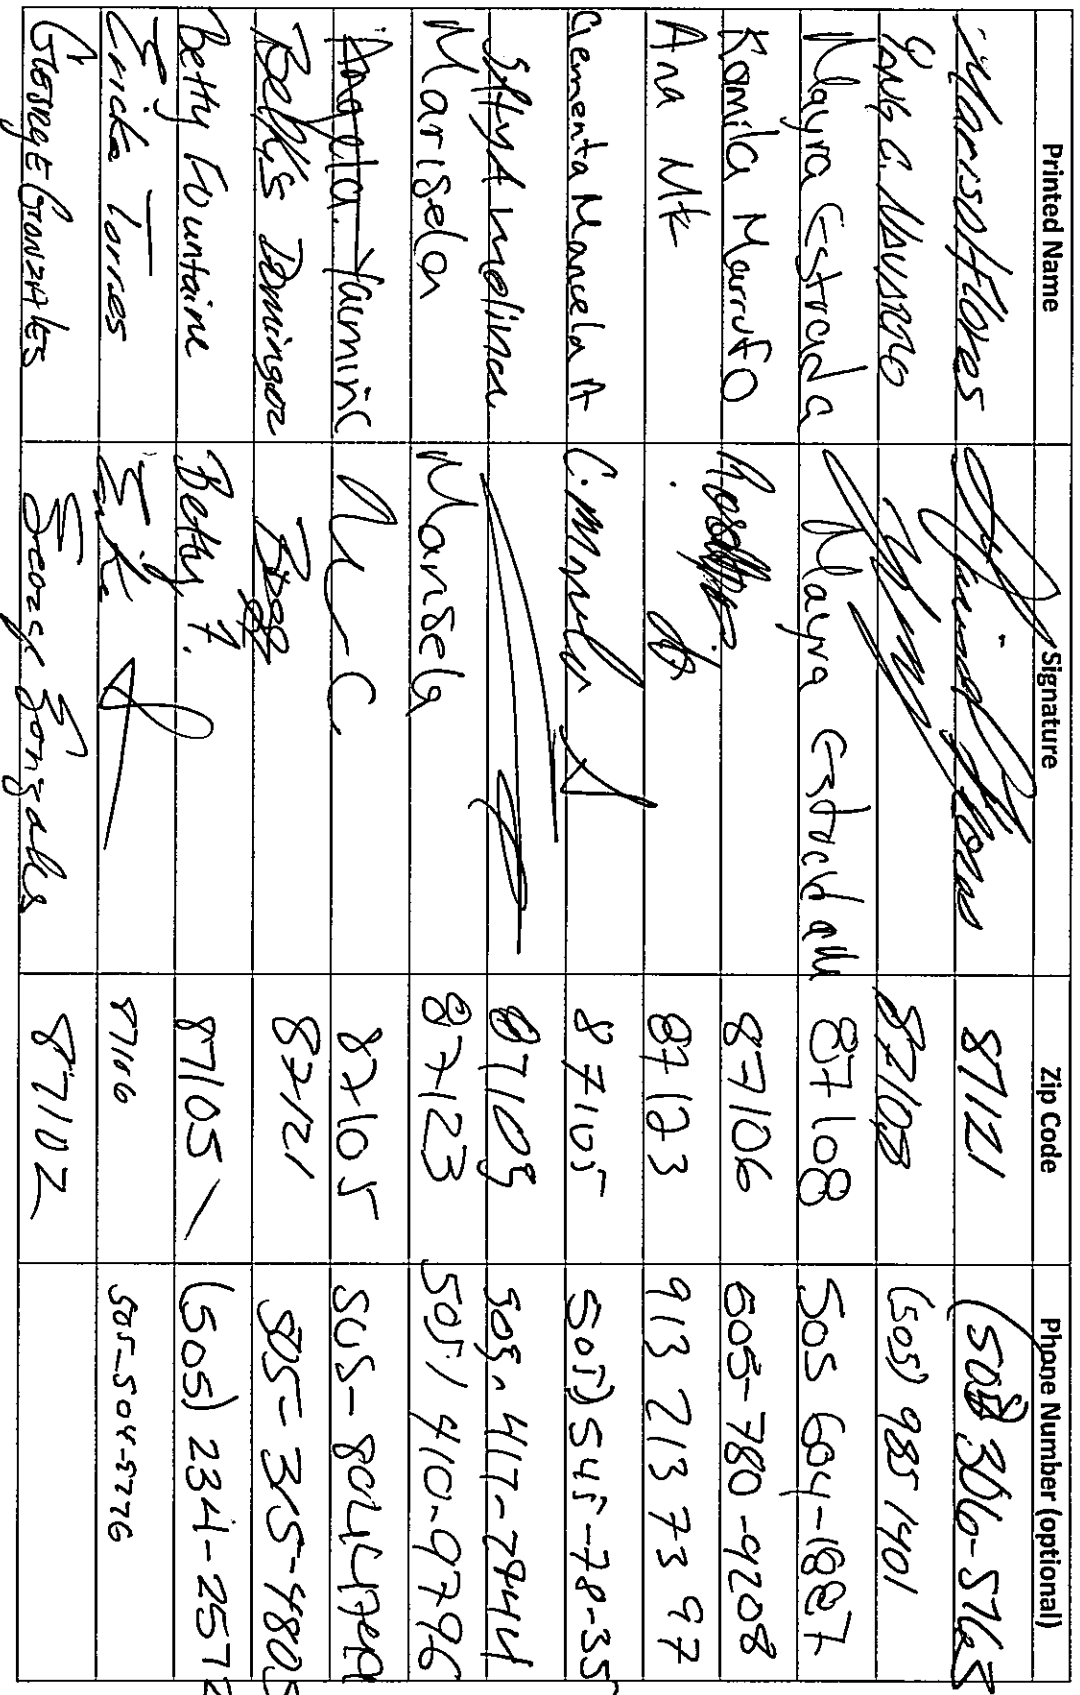 Printed Name Signature Zip Code Phone Number (optional)
Marisol Flores Flores 87121 (505) 306-5765
Navarro 87108 (505) 985 1401
Mayra Estrada Mayra Estrada 87108 505 604-1887
Kamila Marrufo 87106 505-780-9208
Ana Mtz 87123 913 213 73 97
Clementa Marcela A C. 87105 505) 545-78-35
molina 87105 505. 417-7444
Marisela Marisela 87123 505/ 410-9796
Yacmin C 87105 505-
Dominguez 87121 505-315-4805
Betty Fountaine Betty F. 87105 (505) 234-2572
Ericka Torres 87106 505-504-5776
George Gonzales George Gonzales 87102